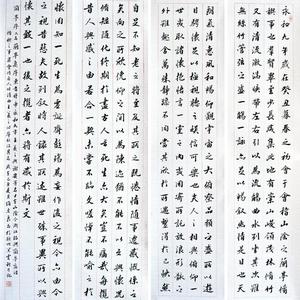 永和九年歲在癸丑暮春之初會于會稽山陰之蘭亭脩禊
事也群賢畢至少長咸集此地有崇山峻嶺茂林脩竹
又有清流激湍映帶左右引以為流觴曲水列坐其次雖
無絲竹管弦之盛一觴一詠亦足以暢敘幽情是日也天
朗氣清惠風和暢仰觀宇宙之大俯察品類之盛所以遊
目騁懷足以極視聽之娛信可樂也夫人之相與俯仰一
世或取諸懷抱悟言一室之內或因寄所託放浪形骸之
外雖趣舍萬殊靜躁不同當其欣於所遇暫得於己快然
自足不知老之將至及其所之既惓情隨事遷感慨係之
矣向之所欣俛仰之間以為陳迹猶不能不以之興懷況
脩短隨化終期於盡古人云死生亦大矣豈不痛哉每攬
昔人興感之由若合一契未嘗不臨文嗟悼不能喻之於
懷固知一死生為虛誕齊彭殤為妄作後之視今亦由今
之視昔悲夫故列敘時人錄其所述雖世殊事異所以興
懷其致一也後之攬者亦將有感於斯